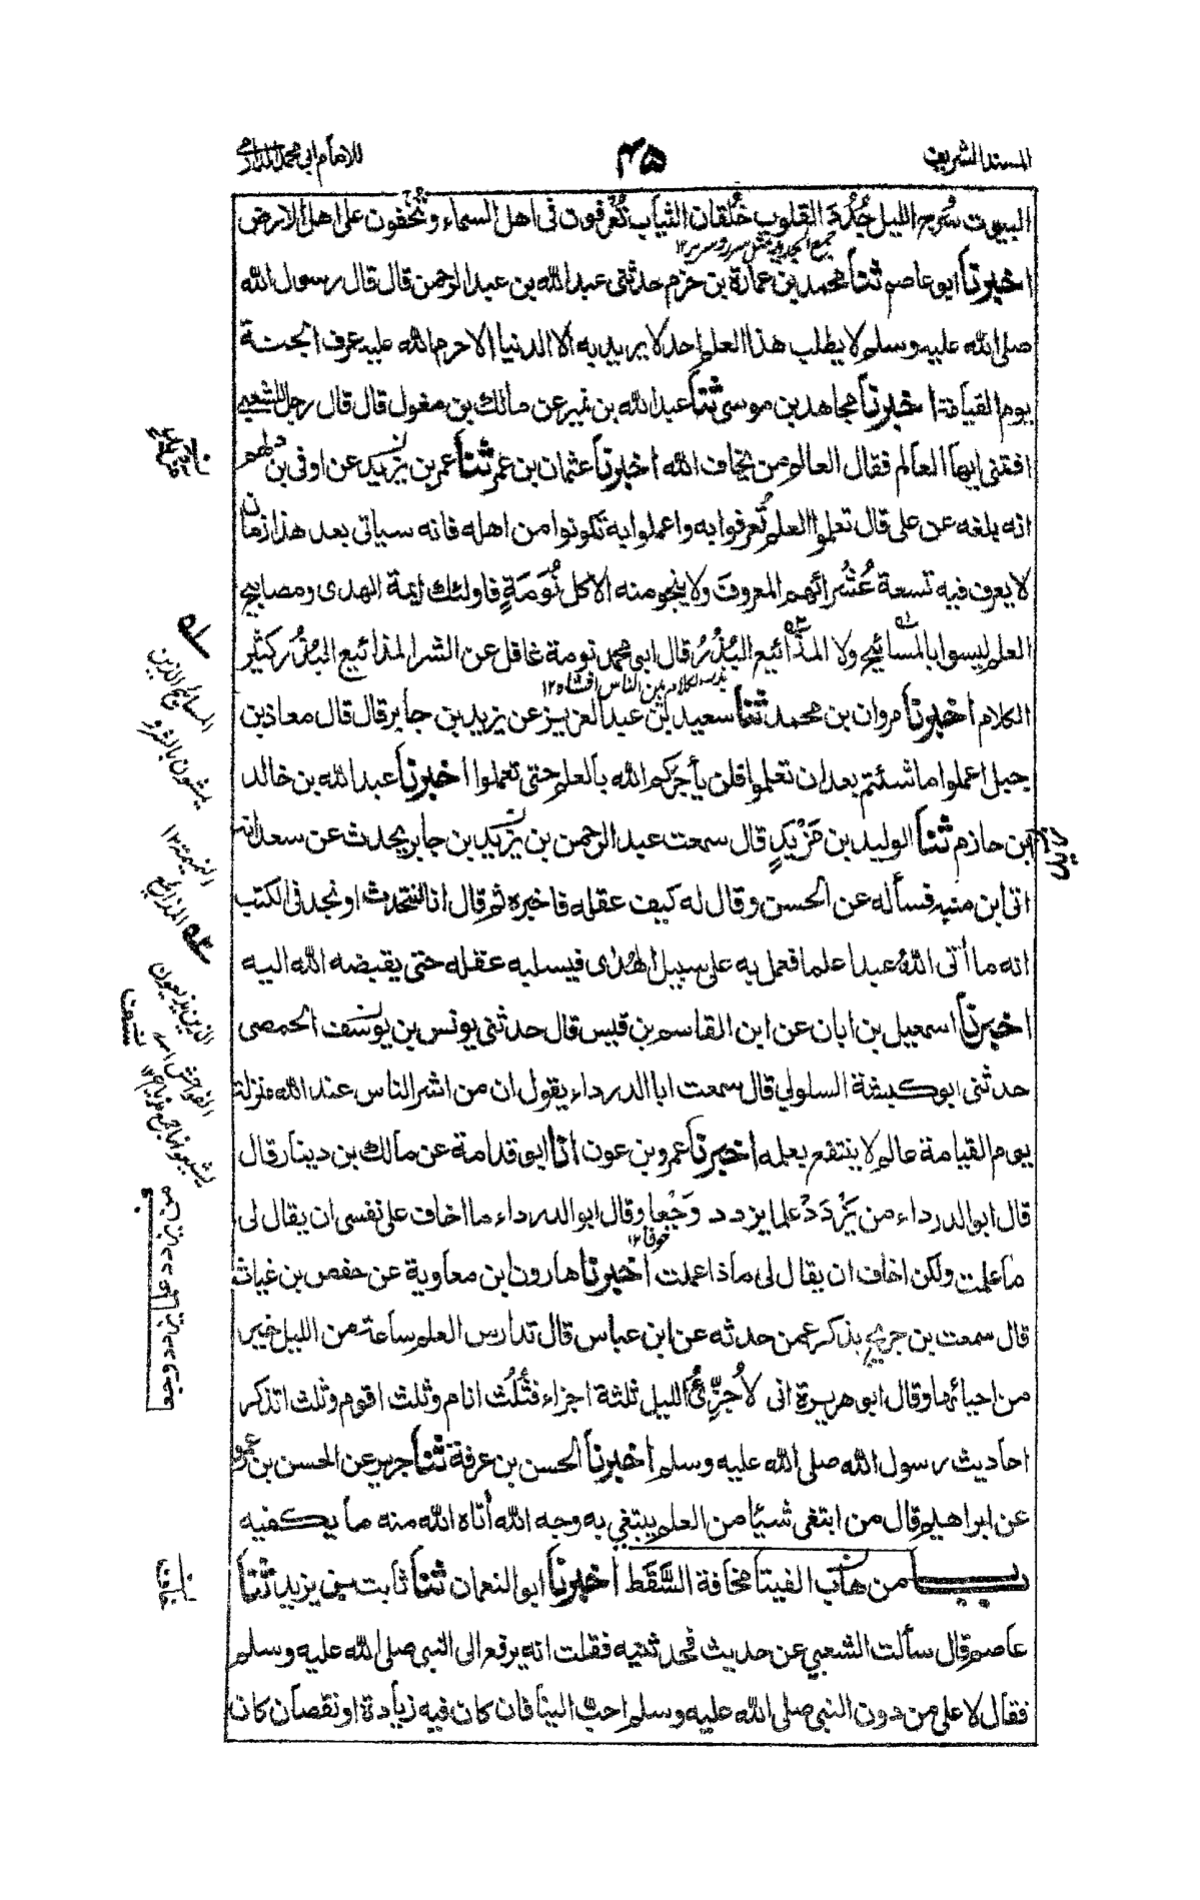 المسند الشريف
٤٥
للامام ابي محمد الدارمي
البيوت سُرج الليل جُدُدَ القلوب خُلقان الثياب تُعرفون فى اهل السماء وتُخفون على اهل الارض
اخبرنا ابو عاصم ثنا محمد بن عمارة بن حزم حدثنى عبد الله بن عبد الرحمن قال قال رسول الله
صلى الله عليه وسلم لا يطلب هذا العلم احد لا يريد به الا الدنيا الا حرم الله عليه عرف الجنة
يوم القيامة اخبرنا مجاهد بن موسى ثنا عبد الله بن نمير عن مالك بن مغول قال قال رجل للشعبي
افتنى ايها العالم فقال العالم من يخاف الله اخبرنا عثمان بن عمر ثنا عمر بن يزيد عن اوفى بن دلهم
انه بلغه عن على قال تعلموا العلم تُعرفوا به واعملوا به تكونوا من اهله فانه سياتى بعد هذا زمان
لا يعرف فيه تسعة عُشُرائهم المعروف ولا ينجو منه الا كل نُوَمَةٍ فاولئك ائمة الهدى ومصابيح
العلم ليسوا بالمسائيح ولا المذائيع البُذُرُ قال ابى محمد نومة غافل عن الشر المذائيع البُذُر كثير
الكلام اخبرنا مروان بن محمد ثنا سعيد بن عبد العزيز عن يزيد بن جابر قال قال معاذ بن
جبل اعملوا ما شئتم بعد ان تعلموا فلن يأجركم الله بالعلم حتى تعملوا اخبرنا عبد الله بن خالد
بن حازم ثنا الوليد بن مَزْيَدٍ قال سمعت عبد الرحمن بن يزيد بن جابر يحدث عن سعد انه
اتى ابن منبه فسأله عن الحسن وقال له كيف عقله فاخبره ثم قال انا لنتحدث او نجد فى الكتب
انه ما أتى اللهُ عبدا علما فعمل به على سبيل الهُدى فيسلبه عقله حتى يقبضه الله اليه
اخبرنا اسمعيل بن ابان عن ابن القاسم بن قيس قال حدثنى يونس بن يوسف الحمصى
حدثنى ابو كبشة السلولي قال سمعت ابا الدرداء يقول ان من اشر الناس عند الله منزلة
يوم القيامة عالم لا ينتفع بعلمه اخبرنا عمرو بن عون انا ابو قدامة عن مالك بن دينار قال
قال ابو الدرداء من يَزْدَدْ علما يزدد وَجْعا وقال ابو الدرداء ما اخاف على نفسى ان يقال لى
ما علمت ولكن اخاف ان يقال لى ماذا عملت اخبرنا هارون ابن معاوية عن حفص بن غياث
قال سمعت بن جريج يذكر عمن حدثه عن ابن عباس قال تدارس العلم ساعة من الليل خير
من احيائها وقال ابو هريرة انى لاُجزِّئُ الليل ثلثة اجزاء فثُلُث انام وثلث اقوم وثلث اتذكر
احاديث رسول الله صلى الله عليه وسلم اخبرنا الحسن بن عرفة ثنا جرير عن الحسن بن عمرو
عن ابراهيم قال من ابتغى شيئا من العلم يبتغي به وجه الله أتاه الله منه ما يكفيه
باب من هاب الفيتا مخافة السَّقَط اخبرنا ابو النعمان ثنا ثابت بن يزيد ثنا
عاصم قال سألت الشعبي عن حديث فحدثنيه فقلت انه يرفع الى النبى صلى الله عليه وسلم
فقال لا على من دون النبى صلى الله عليه وسلم احبّ الينا فان كان فيه زيادة او نقصان كان
المسايح الذين
يمشون بالشر و
النميمة ١٢
المذاييع
الذين يذيعون
الفواحش